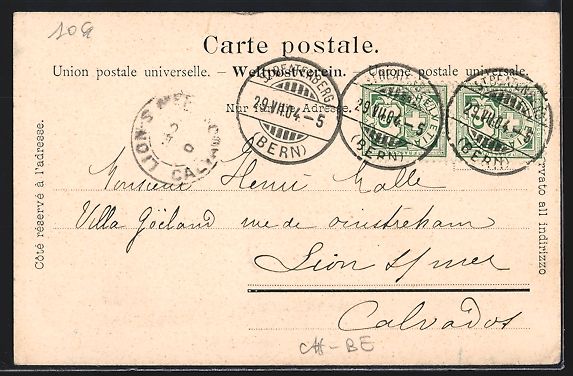 Carte postale.
Union postale universelle. – Weltpostverein. – Unione postale universale.
Nur für die Adresse.
Côté réservé à l'adresse.
29.VII.04.-5
(BERN)
29.VII.04.-5
(BERN)
(BERN)
LION-S
CALVADOS
Monsieur Henri Malle
Villa Goëland rue de ouistreham
Lion s/ mer
Calvados
CH-BE